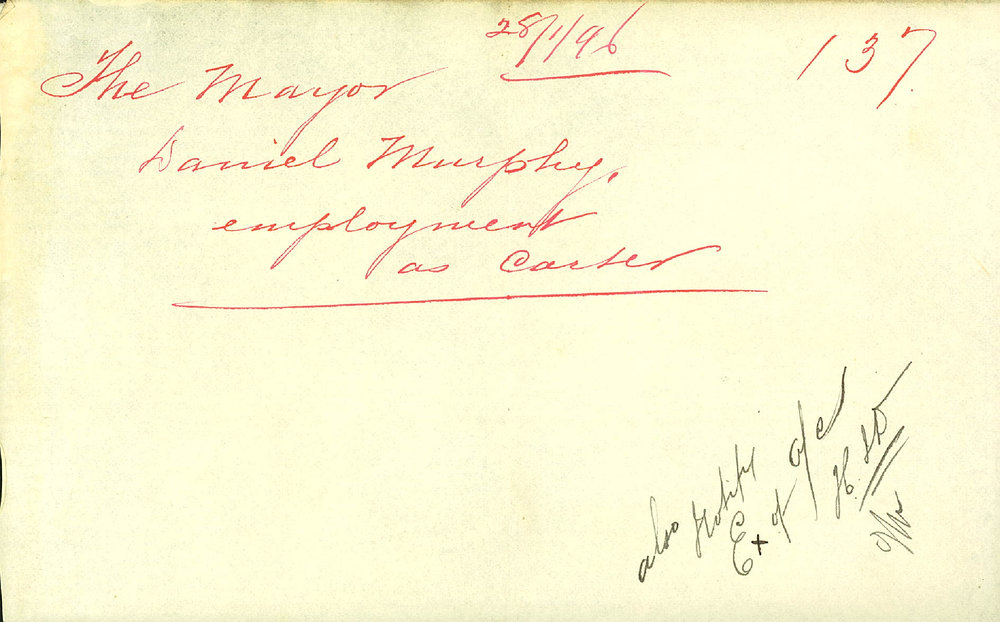 28/1/96
137
The Mayor
Daniel Murphy,
employment
as Carter
also Notify
Ex of a/c